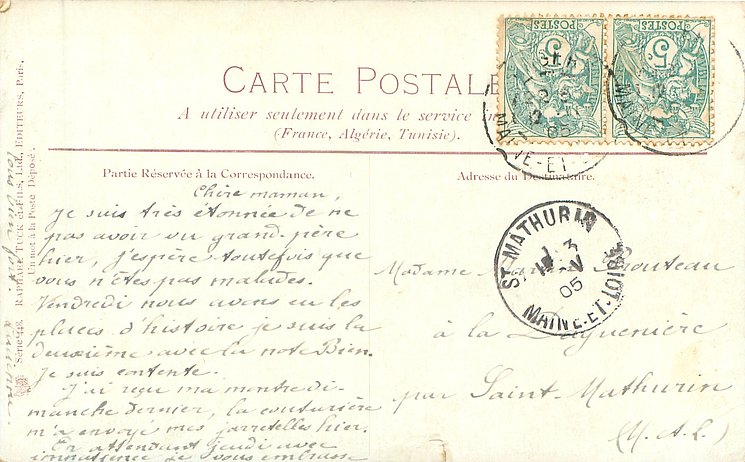 CARTE POSTALE
A utiliser seulement dans le service
(France, Algérie, Tunisie).
POSTES
5
POSTES
5
MAINE-ET-
05
MAINE-
Partie Réservée à la Correspondance.
Adresse du Destinataire.
Chère maman,
Je suis très étonnée de ne
pas avoir vu grand-père
hier, j'espère toutefois que
vous n'êtes pas malades.
Vendredi nous avons eu les
places d'histoire je suis la
deuxième avec la note Bien.
Je suis contente.
J'ai reçu ma montre di-
manche dernier, la couturière
m'a envoyé mes jarretelles hier.
En attendant jeudi avec
impatience je vous embrasse
tous
Madame Mouteau
à la Daguenière
par Saint-Mathurin
(M. & L.)
ST MATHURIN
3
05
MAINE-ET-LOIRE
Série 718. RAPHAEL TUCK et FILS, Ltd., EDITEURS, Paris.
Un mot à la Poste Déposé.